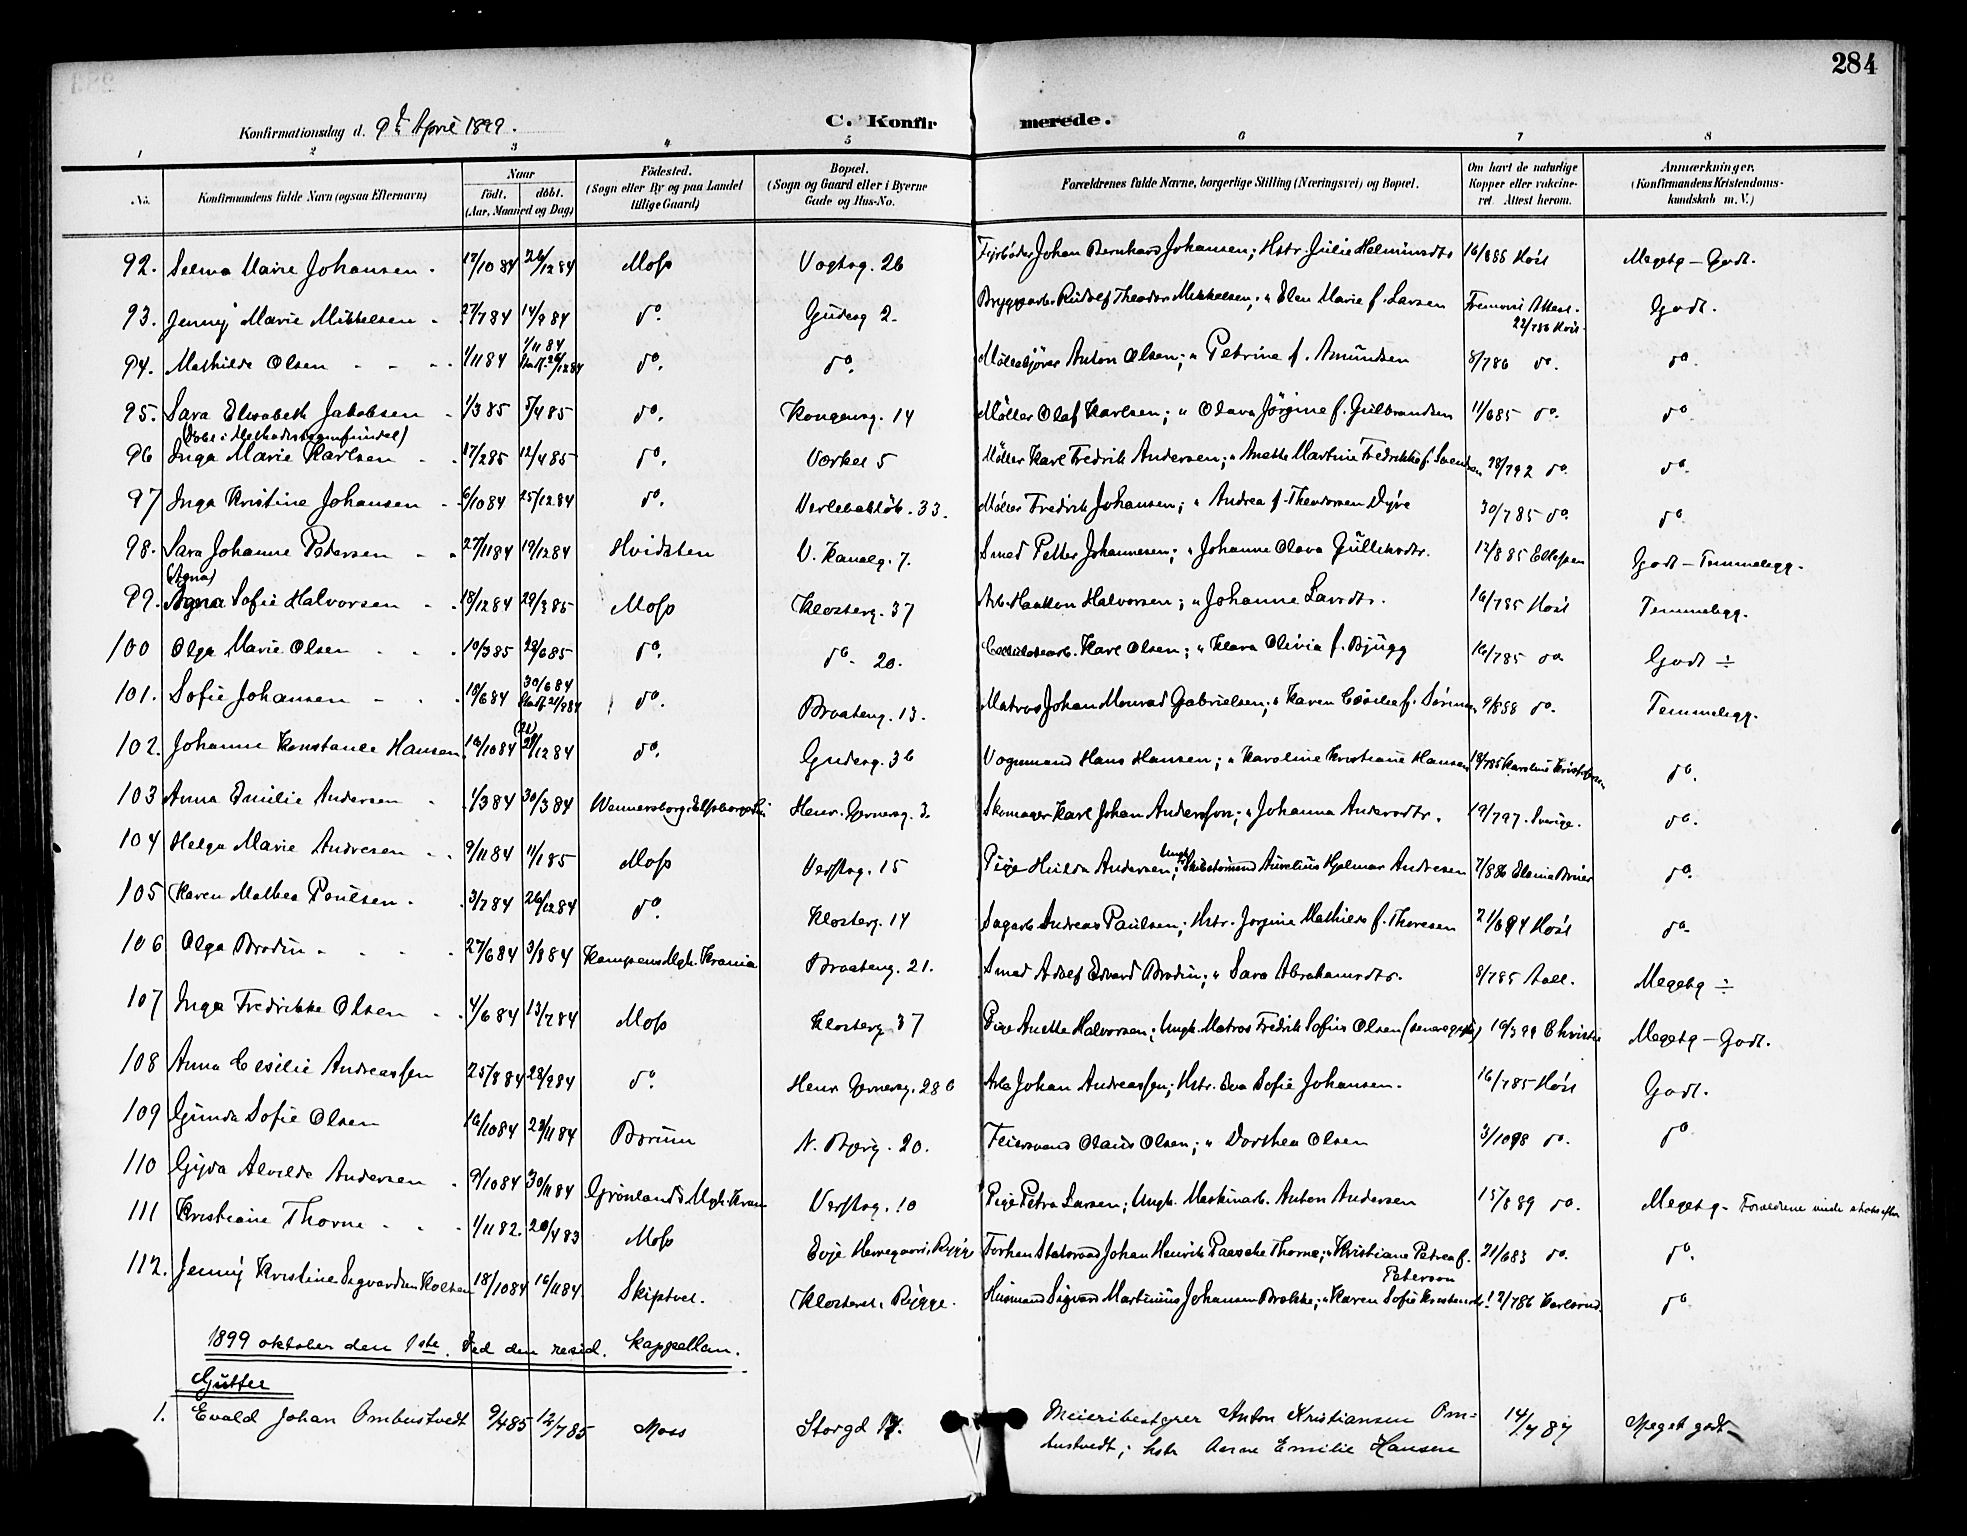 284
Konfirmationsdag d. 9de April 1899.
C. Konfirmerede.
1 2 3 4 5 6 7 8
No. Konfirmandens fulde Navn (ogsaa Efternavn) Naar födt. döbt. (Aar, Maaned og Dag) Födested. (Sogn eller By og paa Landet tillige Gaard) Bopæl. (Sogn og Gaard eller i Byerne Gade og Hus-No. Forældrenes fulde Navne, borgerlige Stilling (Næringsvei) og Bopæl. Om havt de naturlige Kopper eller vakcineret. Attest herom. Anmærkninger. (Konfirmandens Kristendomskundskab m. V.)
92. Selma Marie Johansen 17/10 84 26/12 84 Moss Vogtsg. 26 Fyrböder Johan Bernhard Johansen; Hstr. Julie Halmundsdtr 16/885 Host Megetg - Godt.
93. Jenny Marie Mikkelsen 27/7 84 14/9 84 do. Gudesg 2. Bryggearb. Rudolf Theodor Mikkelsen; " Elen Marie f. Larsen Fremvist Attest. 22/786 Host Godt.
94. Mathilde Olsen 1/11 84 1/11 84 Stadf. 26/12 84 do. do. Møllekjører Anton Olsen; " Petrine f. Amundsen 8/786 do. do.
95. Sara Elisabeth Jakobsen 1/3 85 5/4 85 do. Kongensg. 14 Møller Olaf Karlsen; " Olava Jörgine f. Gulbrandsen 11/685 do. do.
(Döbt i Methodistmenigheden)
96 Inga Marie Karlsen 17/2 85 12/4 85 do. Værket 5 Møller Karl Fredrik Andersen; " Anette Martine Fredrikke f. Svendsen 28/792 do. do.
97 Inga Kristine Johansen 6/10 84 25/12 84 do. Verlebakløk. 33. Møller Fredrik Johansen; " Andrea f. Theodorsen Dyre 30/785 do. do.
98. Sara Johanne Pedersen 27/11 84 19/12 84 Hvidsten V. Kanalg. 7. Smed Petter Johannesen; " Johanne Olava Gulliksdtr. 12/885 Ellefsen Godt - Temmeligg.
(Agna)
99. Agna Sofie Halvorsen 18/12 84 29/3 85 Moss Klosterg. 37 Arb. Haakon Halvorsen; " Johanne Larsdtr. 16/785 Host Temmeligg.
100 Olga Marie Olsen 10/3 85 28/6 85 do. do. 20. Cellulosearb. Karl Olsen; " Klara Olivia f. Bjugg 16/785 do. Godt ÷
101. Sofie Johansen 18/6 84 30/6 84 Stadf. 21/9 84 do. Braateng. 13. Matros Johan Monrad Gabrielsen; " Karen Cesilie f. Sörensen 9/888 do. Temmeligg.
102. Johanne Konstance Hansen 16/10 84 28/12 84 do. Gudesg. 36 Vognmand Hans Hansen; " Karoline Kristiane Hansen 18/785 Karoline Kristiansen do.
103 Anna Emilie Andersen 1/3 84 30/3 84 Wennersborg, Elfsborgs Län Henr. Gernersg. 3. Skomager Karl Johan Andersson; " Johanna Andersdtr. 19/797. Sverige. do.
104 Helga Marie Andresen 9/11 84 11/1 85 Moss Verftsg. 15 Pige Hulda Andersen; Ungk. Skibstömmand Aurelius Hjalmar Andresen 7/886 Elenia Bruer do.
105 Karen Mathea Poulsen 3/7 84 26/12 84 do. Klosterg. 14 Sagarb Andreas Paulsen; Hstr. Jorgine Mathilde f. Thoresen 21/694 Host do.
106 Olga Brodin 27/6 84 3/8 84 Kampens Mgh. Krania Braateng. 21. Smed Adolf Edvard Brodin; " Sara Abrahamsdtr. 8/785 Aall. Megetg ÷
107 Inga Fredrikke Olsen 4/6 84 13/7 84 Moss Klosterg 37 Pige Anette Halvorsen; Ungk. Matros Fredrik Sofus Olsen (senere gift) 10/399 Christie Megetg - Godt.
108 Anna Cesilie Andreassen 25/8 84 28/9 84 do. Henr Gernersg. 28 b Arb Johan Andreassen; Hstr. Eva Sofie Johansen. 16/785 Host Godt.
109 Gunda Sofie Olsen 16/10 84 23/11 84 Borum N. Bjerg. 20. Feiersvend Olaus Olsen; " Dorthea Olsen 3/1098 do. do.
110 Gyda Alvilde Andersen 9/10 84 30/11 84 Grönlands Mgh. Kran Verftsg. 10 Pige Petra Larsen; Ungk. Maskinarb. Anton Andersen 15/889 do. Megetg - Forældrene viede strax efter
111 Kristiane Thorne 1/11 82. 20/4 83 Moss Evje Herregaard, Rygge Forhen Statsraad Johan Henrik Paasche Thorne; " Kristiane Petrea f. Peterson 21/683 do. do.
112. Jenny Kristine Sigvardsen Holsen 18/10 84 16/11 84 Skiptvet. Klosteret, Rygge. Husmand Sigvard Martinius Johansen Brekke; " Karen Sofie Kristensdtr 12/786 Karlsrud do
1899 oktober den 1ste. Ved den resid. Kappellan.
Gutter
1. Evald Johan Ombustvedt 9/4 85 12/7 85 Moss Storgd 17. Meieribestyrer Anton Kristiansen Ombustvedt; hstr Anne Emilie Hansen 14/7 87 Meget godt